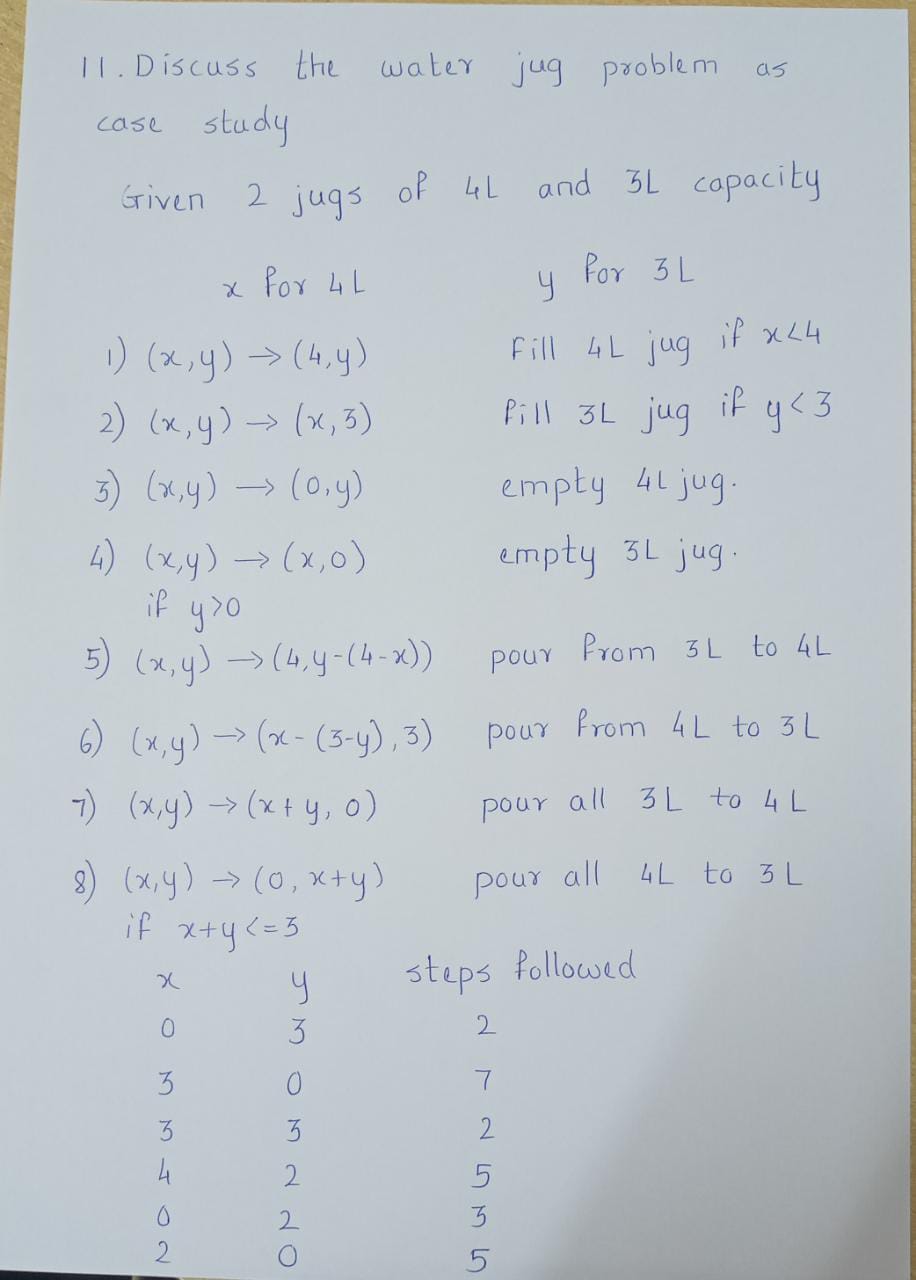 11. Discuss the water jug problem as
case study
Given 2 jugs of 4L and 3L capacity
x for 4L y for 3L
1) (x,y) → (4,y) Fill 4L jug if x<4
2) (x,y) → (x,3) fill 3L jug if y<3
3) (x,y) → (0,y) empty 4L jug.
4) (x,y) → (x,0) empty 3L jug.
if y>0
5) (x,y) → (4,y-(4-x)) pour from 3L to 4L
6) (x,y) → (x-(3-y),3) pour from 4L to 3L
7) (x,y) → (x+y, 0) pour all 3L to 4L
8) (x,y) → (0, x+y) pour all 4L to 3L
if x+y<=3
x y steps followed
0 3 2
3 0 7
3 3 2
4 2 5
0 2 3
2 0 5